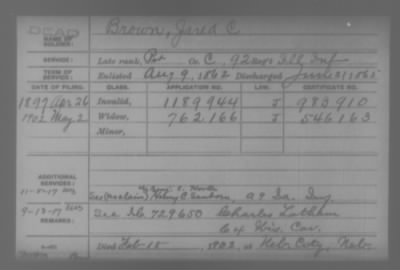 DEAD
NAME OF SOLDIER: Brown, Jared C
SERVICE: Late rank, Pvt Co. C, 92 Reg't Ill Inf
TERM OF SERVICE: Enlisted Aug 9, 1862 Discharged June 21 1865
DATE OF FILING. CLASS. APPLICATION NO. LAW. CERTIFICATE NO.
1897 Apr 26 Invalid, 1189944 J 983910
1902 May 2 Widow, 762166 J 546163
Minor,
ADDITIONAL SERVICES:
11-5-17
See Henry C Sanborn, A 9 Ia. Inf.
9-13-17
See I.O. 729650 Charles Latham
REMARKS: C 4 Wis. Cav.
Died Feb 15, 1902, at Nebr City, Nebr.